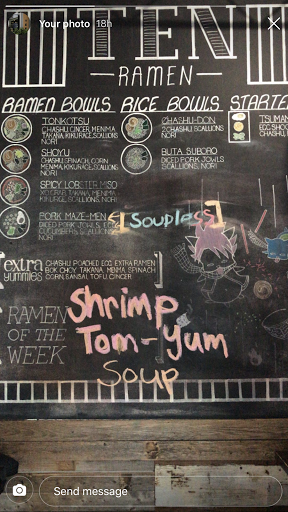 Your photo 18h
TEN
RAMEN
RAMEN BOWLS RICE BOWLS STARTE
TONKOTSU
CHASHU, GINGER, MENMA
TAKANA, KIKURAGE, SCALLIONS
NORI
SHOYU
CHASHU, SPINACH, CORN
MENMA, KIKURAGE, SCALLIONS
NORI
SPICY LOBSTER MISO
TAKANA, MENMA
KIKURAGE, SCALLIONS, NORI
PORK MAZE-MEN
DICED PORK JOWLS,
CUCUMBERS, SCALLIONS
NORI
[Soupless]
CHASHU-DON
2 CHASHU, SCALLIONS
NORI
BUTA SUBORO
DICED PORK JOWLS,
SCALLIONS, NORI
TSUMAM
EGG, SHOO
CHASHU,
extra
yummies
CHASHU, POACHED EGG, EXTRA RAMEN
BOK CHOY, TAKANA, MENMA, SPINACH
CORN, SANSAI, TOFU, GINGER
RAMEN
OF THE
WEEK
Shrimp
Tom-Yum
Soup
Send message